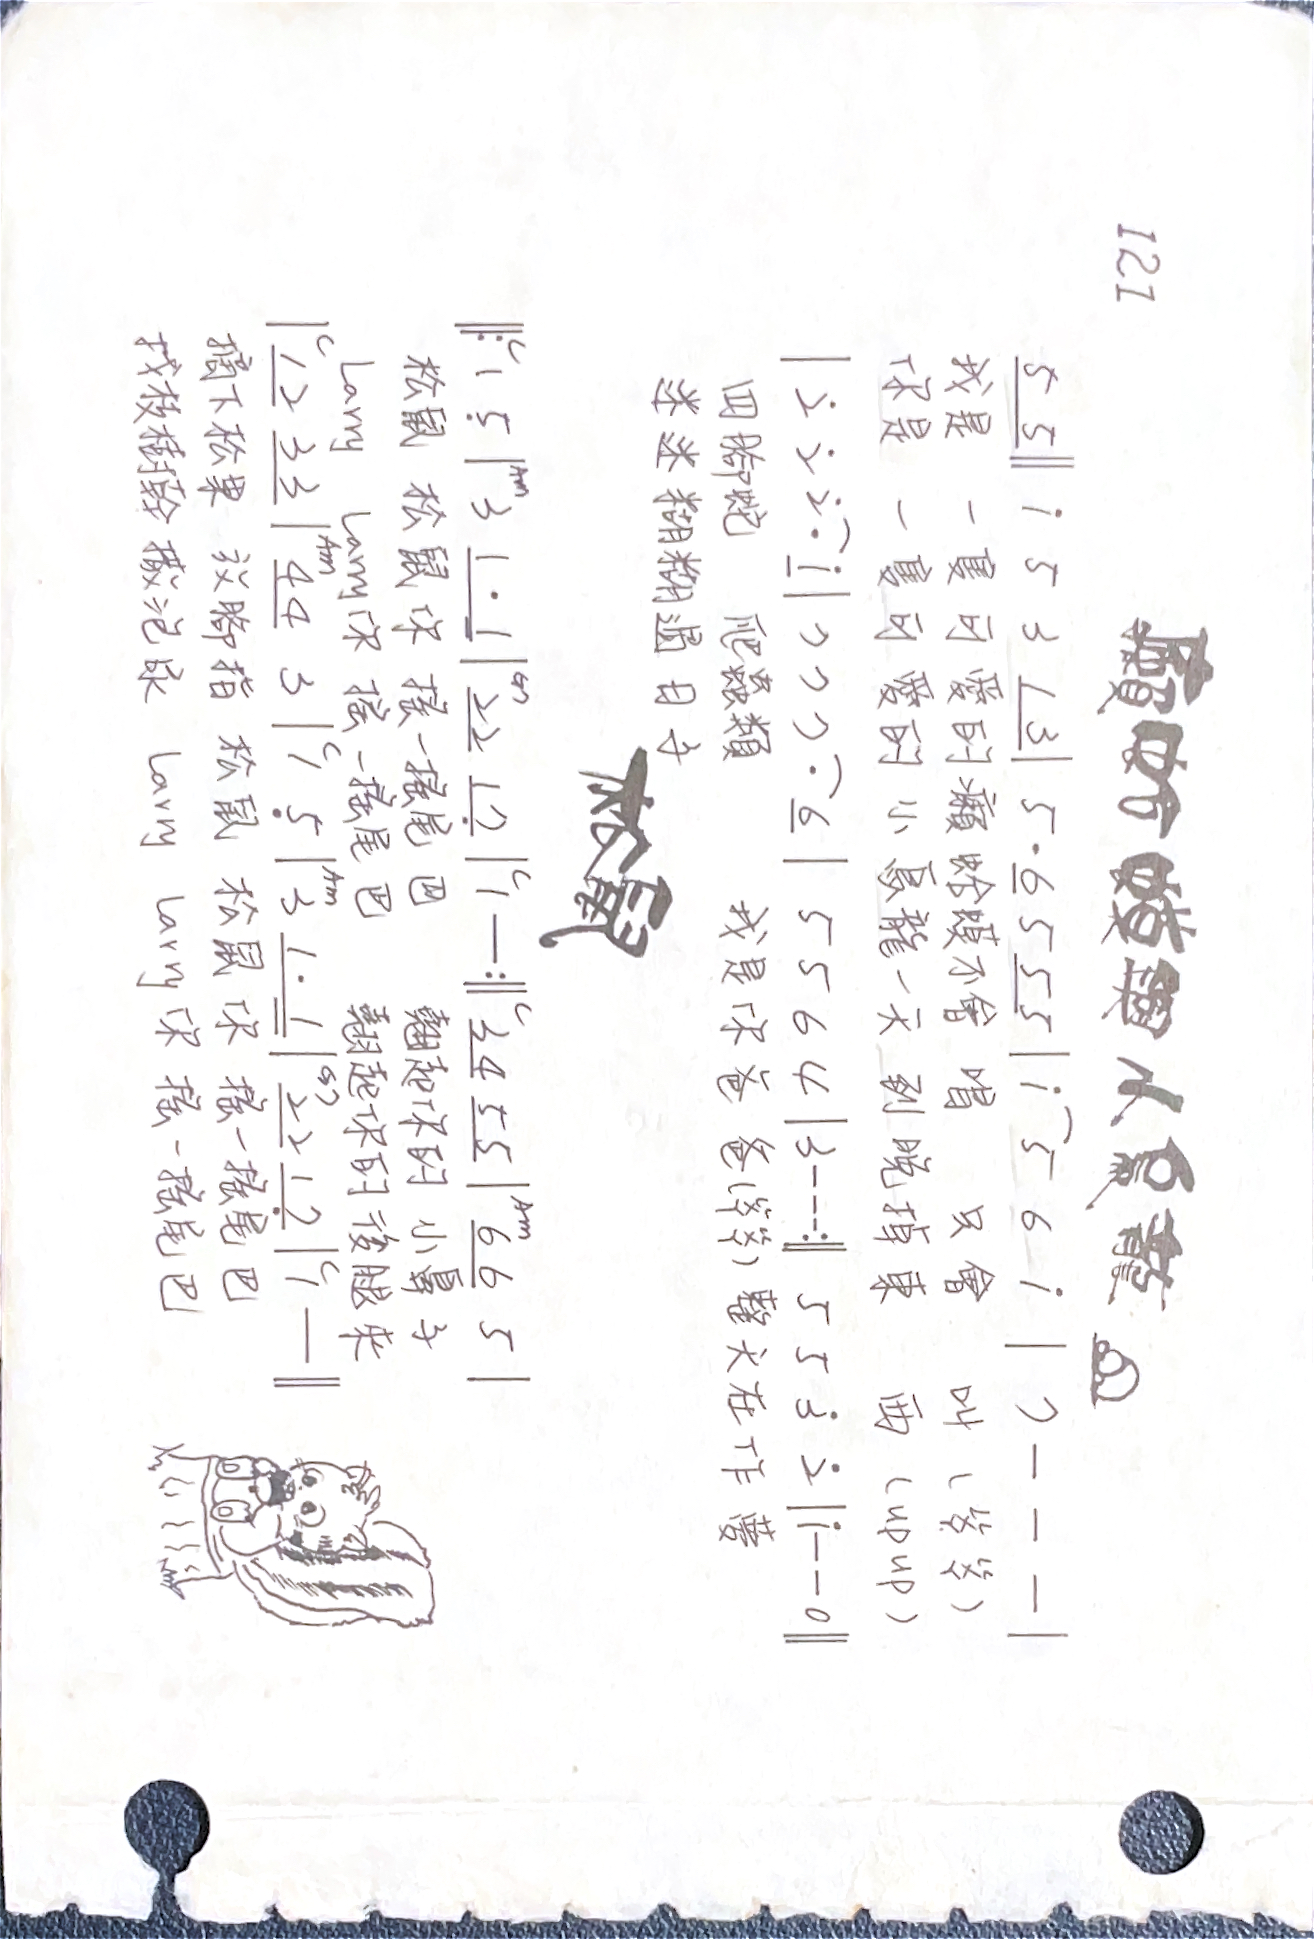 121
癩蛤蟆與小烏龍
5 5‖ i 5 3 1 3| 5·6 5 5 5 | i 5 6 i | 7 — — — |
我是 一隻可愛的癩蛤蟆不會唱 只會 叫（爷爷）
你是 一隻可愛的 小烏龍一天到晚掉東 西（up up）
| 2̇ 2̇ 2̇· i | 7 7 7· 6 | 5 5 6 4 | 3---:‖ 5 5 3̇ 2̇ | i--0‖
四腳蛇 爬蟲類 我是你爸爸 整天在作夢
迷迷糊糊過日子
松鼠
‖: C 1 5̣ | Am 3 1·1 | G7 2 2 1 7̣ | C 1 — :‖ C 3 4 5 5 | Am 6 6 5 |
松鼠 松鼠你 搖一搖尾巴 翹起你的 小鼻子
Larry Larry你 搖一搖尾巴 翹起你的後腿來
| C 1 2 3 3 | Am 4 4 3 | C 1 5̣ | Am 3 1·1 | G7 2 2 1 7̣ | C 1 — ‖
摘下松果 放腳指 松鼠 松鼠你 搖一搖尾巴
找枝樹幹 撒泡尿 Larry Larry你 搖一搖尾巴